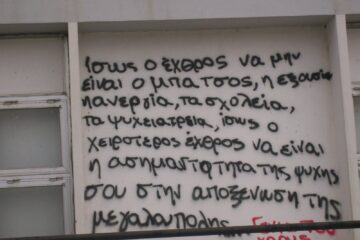 ίσως ο έχθρος να μην
είναι ο μπάτσος, η εξουσία
η ανεργία, τα σχολεία,
τα ψυχειατρεία, ίσως ο
χειρότερος έχθρος να είναι
η ασημαντότητα της ψυχής
σου στην αποξένωση της
μεγαλόπολης